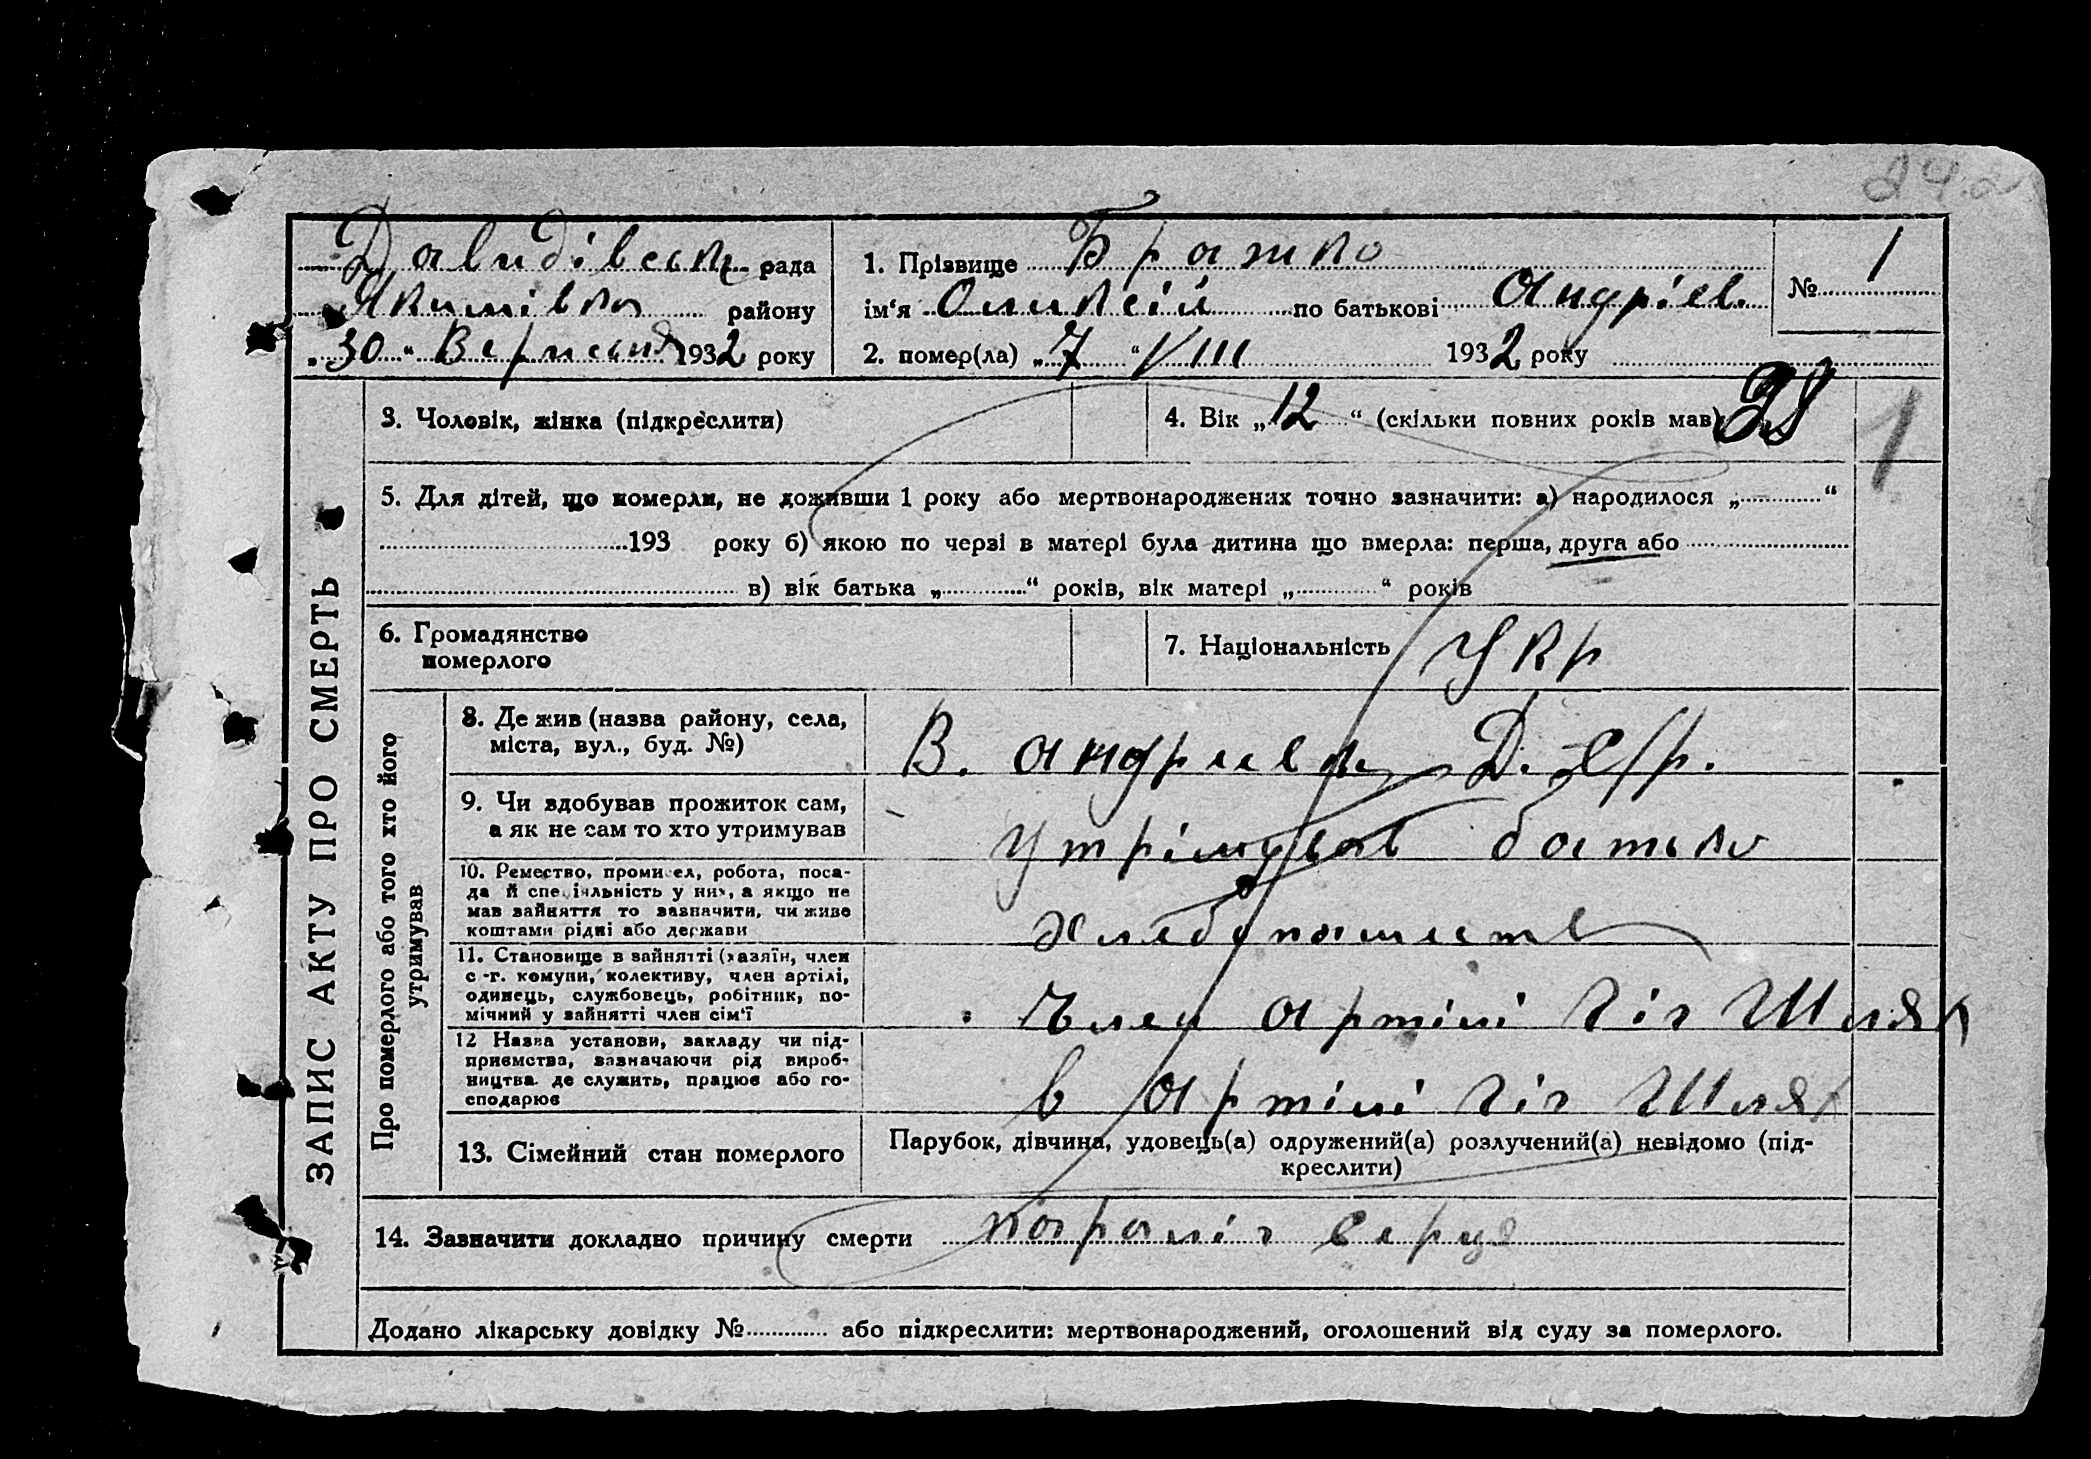 242
Давидівськ рада
Якимівка району
„30“ Вересня 1932 року
1. Прізвище Братко
ім‘я Оликсій по батькові Андріев.
2. помер(ла) „7“ VIII 1932 року
№ 1
3. Чоловік, жінка (підкреслити)
4. Вік „12“ (скільки повних років мав)
1
5. Для дітей, що померли, не доживши 1 року або мертвонароджених точно зазначити: а) народилося „ “
193 року б) якою по черзі в матері була дитина що вмерла: перша, друга або
в) вік батька „ “ років, вік матері „ “ років
6. Громадянство
померлого
7. Національність Укр
ЗАПИС АКТУ ПРО СМЕРТЬ
Про померлого або того хто його
утримував
8. Де жив (назва району, села,
міста, вул., буд. №)
В.
9. Чи здобував прожиток сам,
а як не сам то хто утримував
Утрімував батько
10. Ремество, промисел, робота, поса-
да й спеціяльність у них, а якщо не
мав зайняття то зазначити, чи живе
коштами рідні або держави
11. Становище в зайнятті (хазяїн, член
с-г. комуни, колективу, член артілі,
одинець, службовець, робітник, по-
мічний у зайнятті член сім'ї
Член артілі Шлях
12 Назва установи, закладу чи під-
приємства, зазначаючи рід вироб-
ництва де служить, працює або го-
сподарює
в артілі Шлях
13. Сімейний стан померлого
Парубок, дівчина, удовець(а) одружений(а) розлучений(а) невідомо (під-
креслити)
14. Зазначити докладно причину смерти параліч серця
Додано лікарську довідку № або підкреслити: мертвонароджений, оголошений від суду за померлого.